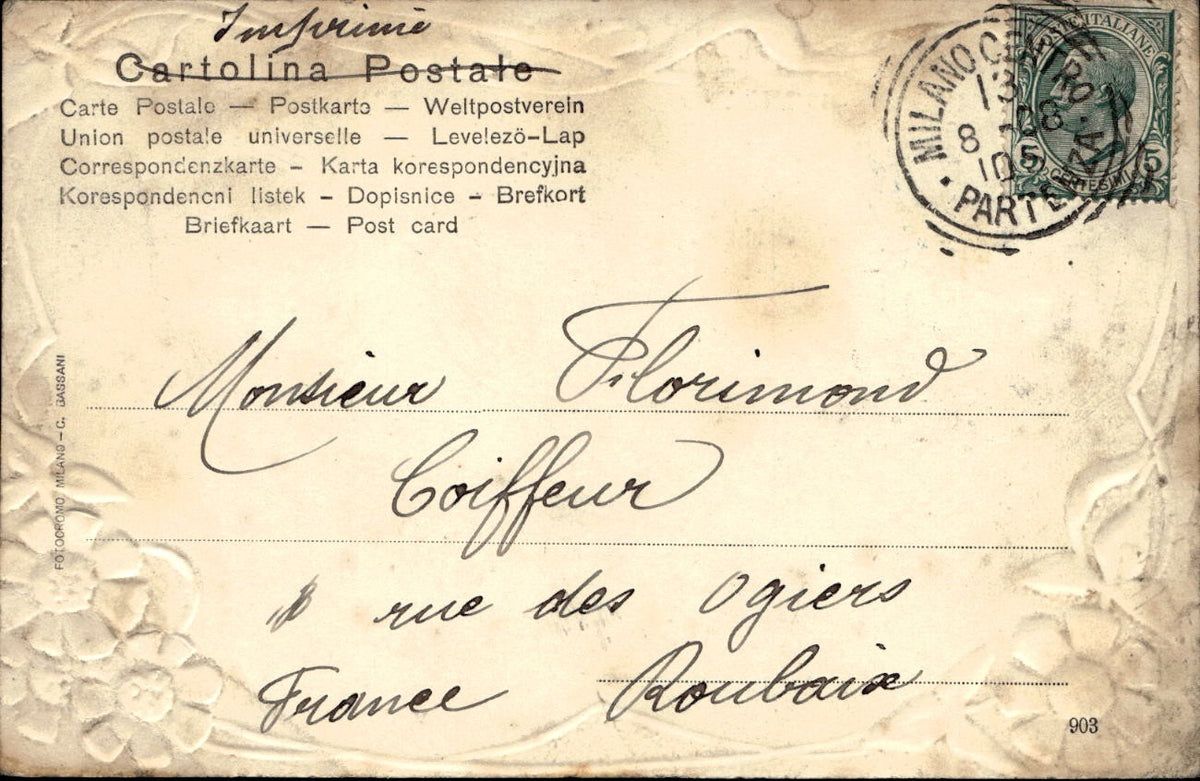 Imprimé
Cartolina Postale
Carte Postale — Postkarte — Weltpostverein
Union postale universelle — Levelezö-Lap
Correspondenzkarte – Karta korespondencyjna
Korespondencni listek – Dopisnice – Brefkort
Briefkaart — Post card
POSTE ITALIANE
MILANO CENTRO
13
8
10
PARTENZA
5
CENTESIMI
Monsieur Florimond
Coiffeur
rue des Ogiers
France Roubaix
FOTODROMO, MILANO – C. BASSANI
903